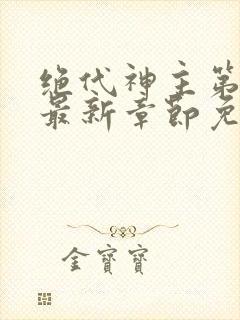 绝代神主第
最新章节免
金寶寶